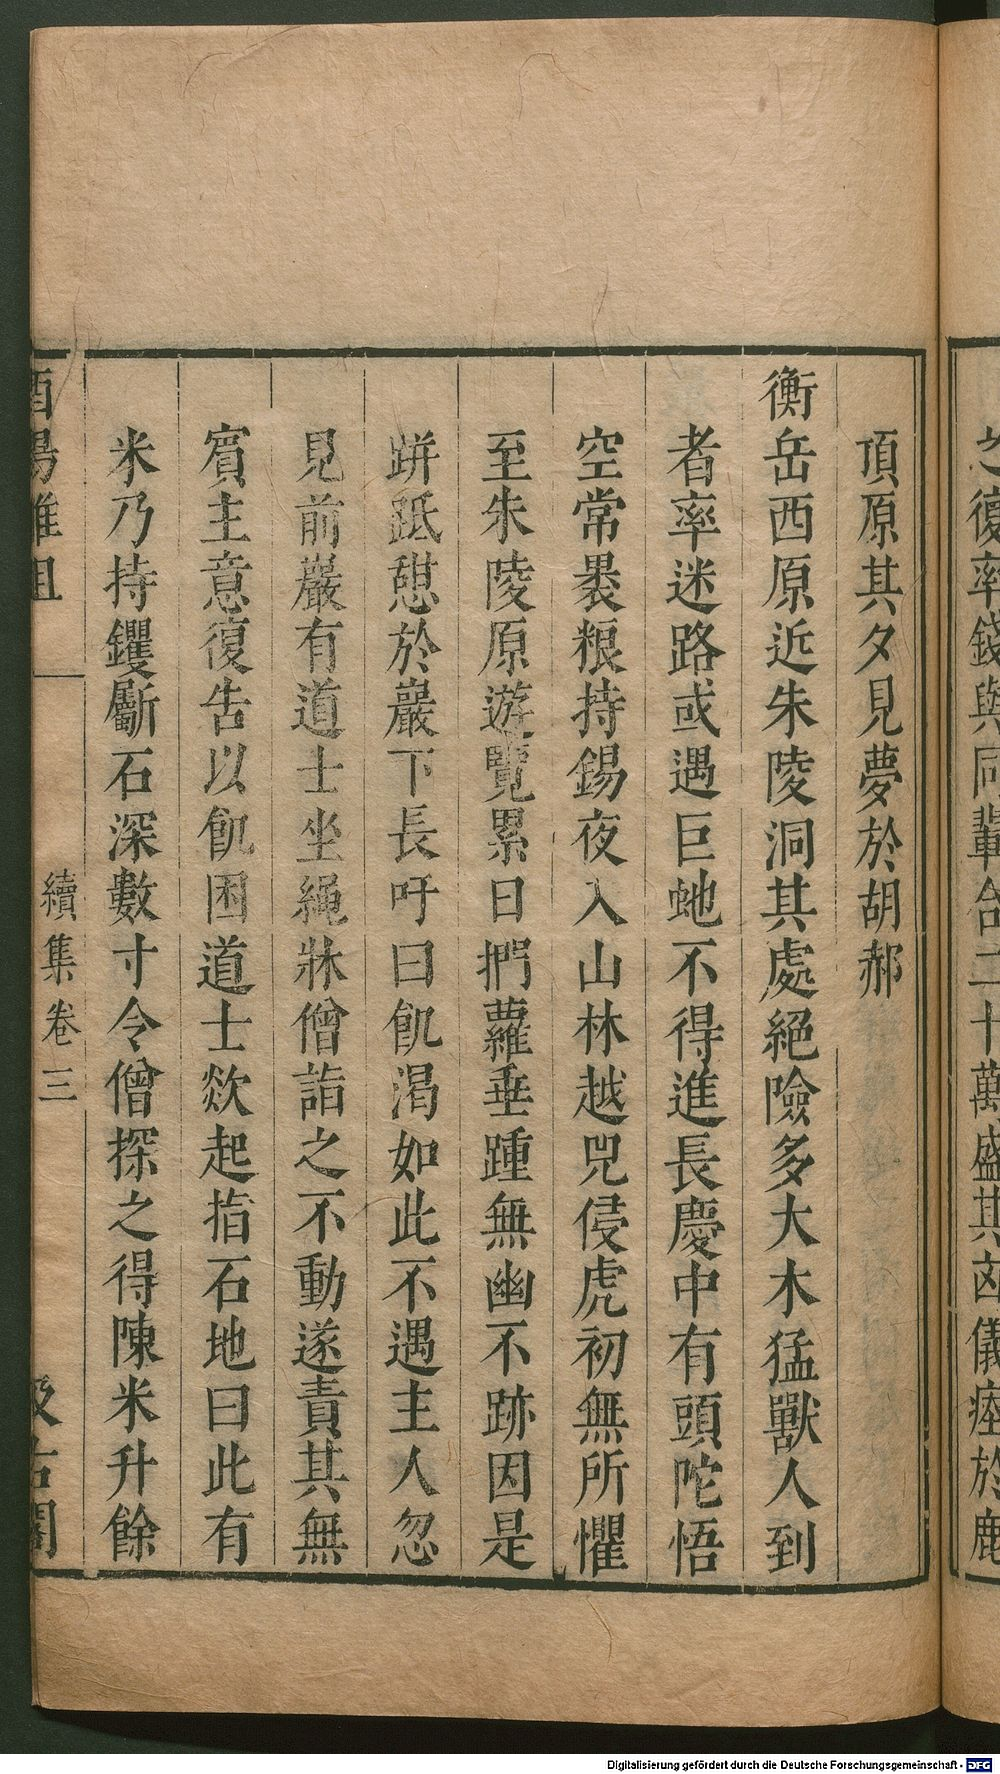 之復率錢與同輩合二十萬盛其凶儀瘞於鹿
頂原其夕見夢於胡郝
衡岳西原近朱陵洞其處絕險多大木猛獸人到
者率迷路或遇巨虵不得進長慶中有頭陀悟
空常褁粮持錫夜入山林越兕侵虎初無所懼
至朱陵原遊覽累日捫蘿垂踵無幽不跡因是
跰胝憇於巖下長吁曰飢渴如此不遇主人忽
見前巖有道士坐繩牀僧詣之不動遂責其無
賓主意復告以飢困道士欻起指石地曰此有
米乃持钁斸石深數寸令僧探之得陳米升餘
酉陽雜俎
續集卷三
汲古閣
Digitalisierung gefördert durch die Deutsche Forschungsgemeinschaft - DFG